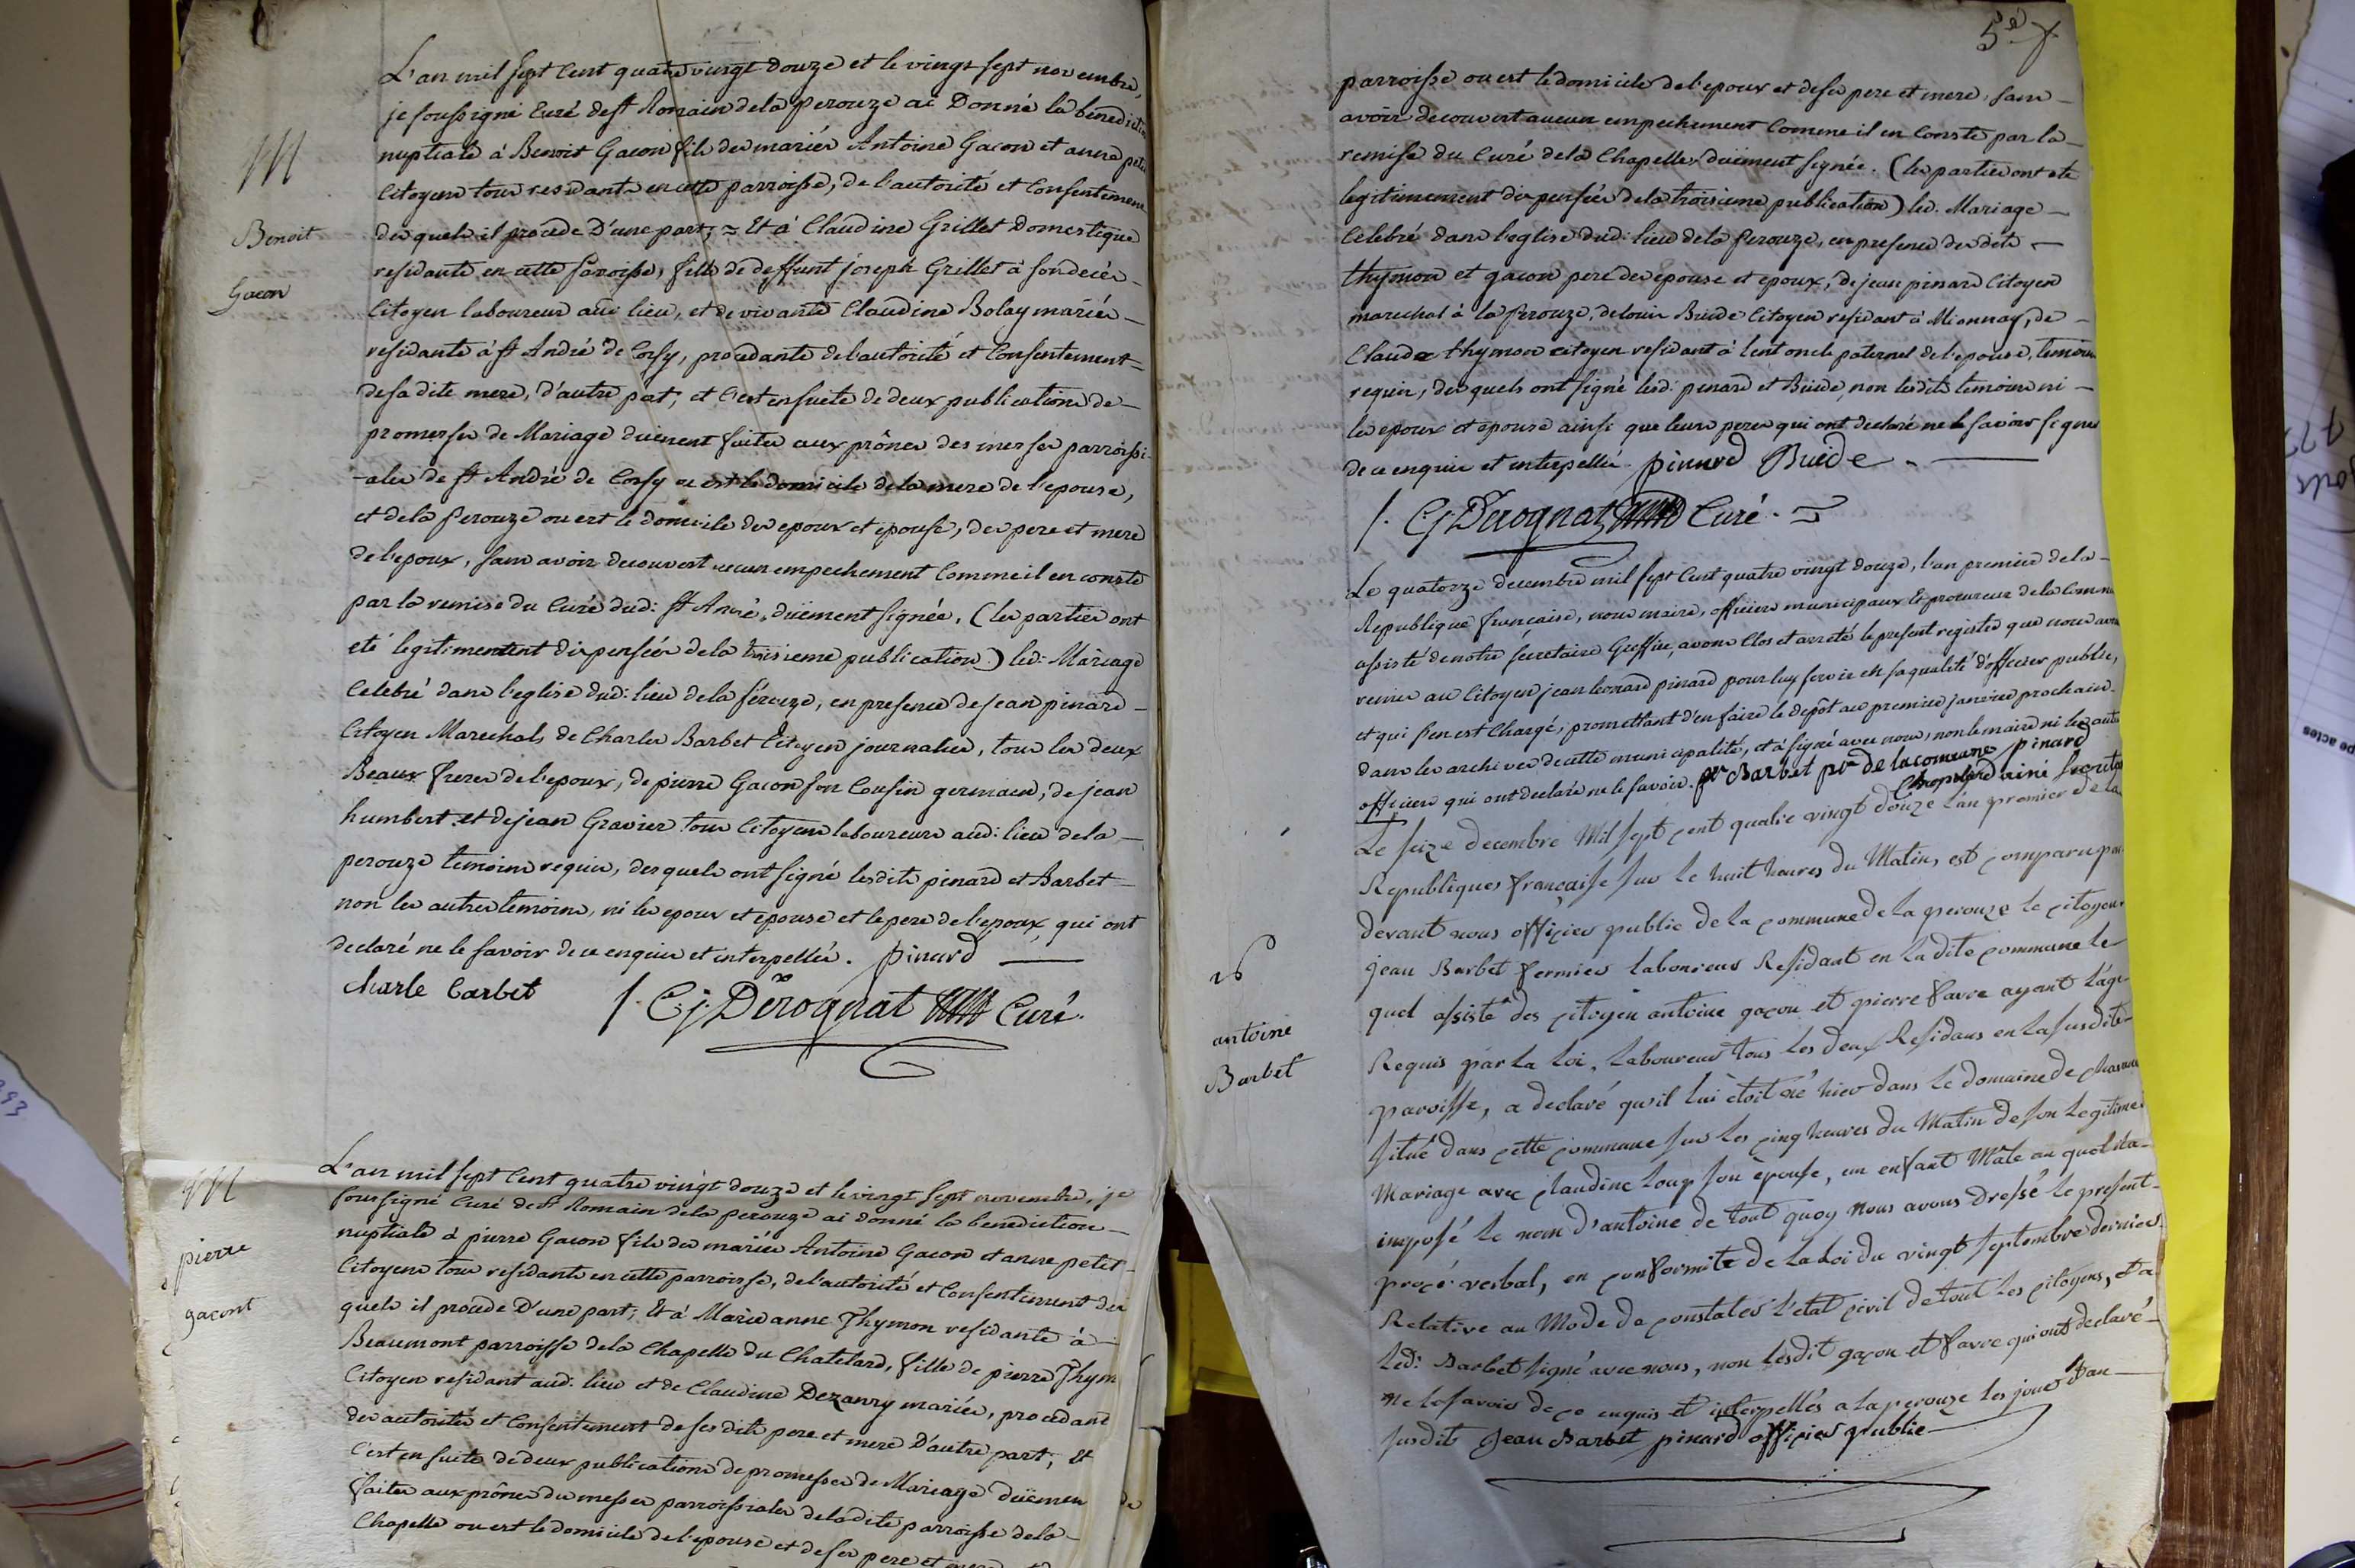 L'an mil sept Cent quatre vingt douze et le vingt sept novembre,
je soussigné Curé de st Romain de la perouze ai Donné la benediction
nuptiale à Benoit Gacon fils des mariés Antoine Gacon et anne petit
Citoyens tous residants en cette parroisse, de l'autorité et Consentement
des quels il procede D'une part; = Et à Claudine Grillet Domestique
residante en cette paroisse, fille de deffunt joseph Grillet à son decés
Citoyen laboureur aud: lieu, et de vivante Claudine Bolay mariés
residante à st André de Corsy, procedante de l'autorité et Consentement
de sa dite mere, d'autre part; et C'est ensuite de deux publications de
promesses de Mariage duëment faites aux prônes des messes parroissi-
-ales de st André de Corsy ou est le domicile de la mere de l'epouse,
et de la perouze ou est le domicile des epoux et epouse, des pere et mere
de l'epoux, sans avoir decouvert aucun empechement Comme il en conste
par la remise du Curé dud: st André, düement signée, (les parties ont
eté legitimement dispensées de la troisieme publication) led: Mariage
Celebré dans l'eglise dud: lieu de la pérouze, en presence de jean pinard
Citoyen Marechal, de Charles Barbet Citoyen journalier, tous les deux
Beaux freres de l'epoux, de pierre Gacon son Cousin germain, de jean
humbert et de jean Gravier tous Citoyens laboureurs aud: lieu de la
perouze temoins requis, des quels ont signé lesdits pinard et Barbet
non les autres temoins, ni les epoux et epouse et le pere de l'epoux, qui ont
declaré ne le savoir de ce enquis et interpellés. pinard
charle barbet /. C. j. Dérognat Curé.
M
Benoit
Gacon
L'an mil sept Cent quatre vingt douze et le vingt sept novembre, je
soussigné Curé de st Romain de la perouze ai donné la benediction
nuptiale à pierre Gacon fils des mariés Antoine Gacon et anne petit
Citoyens tous residants en cette parroisse, de l'autorité et Consentement des
quels il procede D'une part; Et à Marie anne Thymon residante à
Beaumont parroisse de la Chapelle du Chatelard, fille de pierre Thym
Citoyen residant aud: lieu et de Claudine Dezanry mariés, procedant
des autorités et Consentement de ses dits pere et mere D'autre part; Et
C'est ensuite de deux publications de promesses de Mariage düemen
faites aux prônes des messes parroissiales de ladite parroisse de la
Chapelle ou est le domicile de l'epouse et de ses pere et mere
M
pierre
gacont
5e
parroisse ou est le domicile de l'epoux et de ses pere et mere, sans
avoir decouvert aucun empechement Comme il en Conste par la
remise du Curé de la Chapelle, duëment signée. (les parties ont eté
legitimement dispensées de la troisieme publication) led. Mariage
Celebré dans l'eglise dud: lieu de la perouze, en presence desdits
thymon et gacon peres des epouse et epoux, de jean pinard Citoyen
marechal à la perouze, de louis Buide Citoyen residant à Mionnay, de
Claude thymon citoyen residant à lent oncle paternel de l'epouse, temoins
requis, des quels ont signé lesd: pinard et Buide, non lesdits temoins ni
les epoux et epouse ainsi que leurs peres qui ont declaré ne le savoir signer
de ce enquis et interpellés. pinard Buide.
/. C. j. Dérognat Curé.
Le quatorze decembre mil sept Cent quatre vingt douze, l'an premier de la
Republique française, nous maire, officiers municipaux Et procureur de la Commune
assisté de notre secretaire Greffier, avons Clos et arreté le present registre que nous avons
remis au Citoyen jean leonard pinard pour luy servir en sa qualité d'officier public,
et qui s'en est Chargé, promettant d'en faire le depôt au premier janvier prochain
dans les archives de cette municipalité, et à signé avec nous, non le maire ni les autres
officiers qui ont declaré ne le savoir. pre Barbet pr de la comune pinard
secretaire
Le seize decembre Mil sept cent quatre vingt douze l'an premier de la
Republiques française sur le huit heures du Matin, est comparu par
devant nous officier public de la commune de la perouze le citoyen
jean Barbet fermier laboureur Residant en la dite commune le
quel assisté des citoyen antoine gaçon et pierre favre ayant l'age
Requis par la Loi, laboureur tous les deux Residans en la susdite
paroisse, a declaré qu'il lui étoit né hier dans le domaine de
situé dans cette commune sur les cinq heures du Matin de son legitime
Mariage avec claudine loup son épouse, un enfant Mâle au quel il a
imposé le nom d'antoine de tout quoy nous avons dressé le present
procé verbal, en conformité de la Loi du vingt septembre dernier
Relative au Mode de constater l'état civil de tout les citoyens, et a
led: Barbet signé avec nous, non lesdit gaçon et favre qui ont declaré
ne le savoir de ce enquis et interpellés a la perouze les jour et an
susdit Jean Barbet pinard officier public
antoine
Barbet